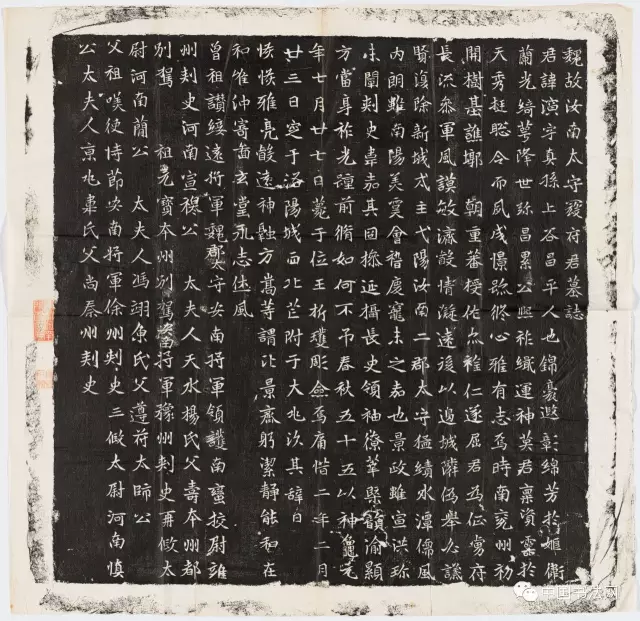 魏故汝南太守寇府君墓誌
君諱演字真孫上谷昌平人也錦裹遐彰綿芳於姬衛
蘭光綺萼降世弥昌累公熙祚繼運神英君稟資靈於
天秀挺聡令而夙成憬跡脩心雅有志焉時南雍州初
開樹基譙鄴朝重蕃捍佐亦雜仁遂屈君為征虜府
長流叅軍風謨敏濬設情凝遠後以邊城隣偽舉必謙
賢復除新城戍主弋陽汝南二郡太守楹績水潭儒風
内朗雖南陽美會稽慶寵未之嘉也景政雖宣洪珎
未闡刾史韋嘉其因操延攝長史領袖僚華韻渝顯
方當身祚光前脩如何不弔春秋五十五以神龜元
年七月廿七日薨于位玉折瓊彫僉焉痛惜二年二月
廿三日窆于洛陽城西北芒附于大兆次其辭曰
恢恢雅亮皎遠神融方嵩等謂比景齋躬潔靜能和在
和唯沖寄啚玄堂永志遺風
曾祖讃綏遠將軍魏郡太守安南將軍領護南蠻校尉雍
州刾史河南宣穆公 太夫人天水楊氏父壽本州都
別駕 祖元寶本州別駕安南將軍豫州刾史再假太
尉河南簡公 太夫人馮翊魚氏父遵苻太師公
父祖嘆使持節安南將軍徐州刾史三假太尉河南慎
公太夫人京兆韋氏父尚秦州刾史
中国书法网